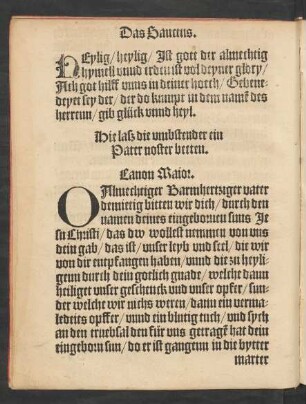 Das Sanctus.
HEylig/ heylig/ Ist gott der almechtig
hymell vnnd erden ist vol deyner glory/
Ach got hilff vnns in deiner hoech/ Gebene
deyet sey der/ der do kumpt in dem namẽ des
herrenn/ gib glück vnnd heyl.
Hie laß die vmbstender ein
Pater noster betten.
Canon Maior.
O Almechtiger Barmhertziger vater
demietig bitten wir dich/ durch den
namen deines eingebornen suns Je
su Christi/ das dw wollest nemmen von vns
dein gab/ das ist/ vnser leyb vnd seel/ die wir
von dir entpfangen haben/ vnnd die zu heyli-
genn durch dein goetlich gnade/ welche dann
heiliget vnser geschenck vnd vnser opfer/ sun-
der welche wir nichs weren/ dann ein verma-
ledeites opffer/ vnnd ein blutig tuch/ vnd sych
an den truebsal den für vns getragẽ hat dein
eingeborn sun/ do er ist gangenn in die bytter
marter